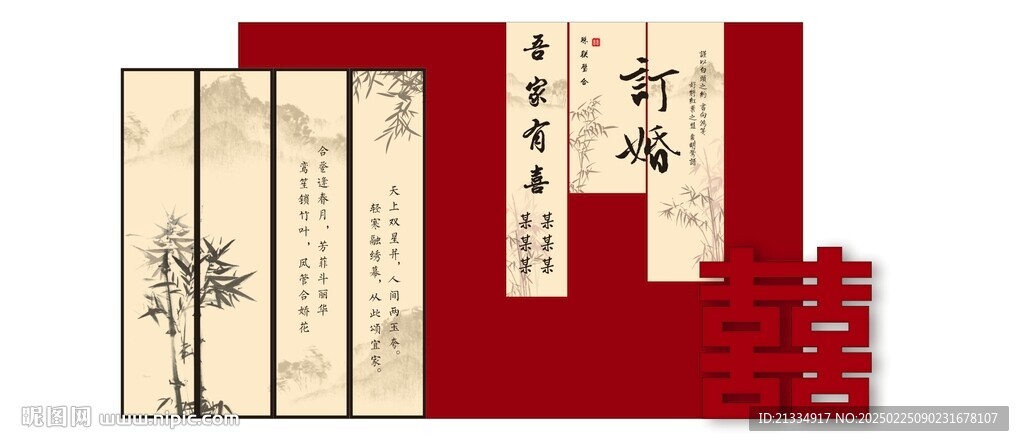 吾家有喜
某某某
某某某
珠联璧合
订婚
谨以白头之约 书向鸿笺
好将红叶之盟 载明鸳谱
合登逢春月，芳菲斗丽华
鸾笙锁竹叶，凤管合娇花
天上双星并，人间两玉夸。
轻寒融绣幕，从此颂宜家。
囍
昵图网 www.nipic.com
ID:21334917 NO:20250225090231678107